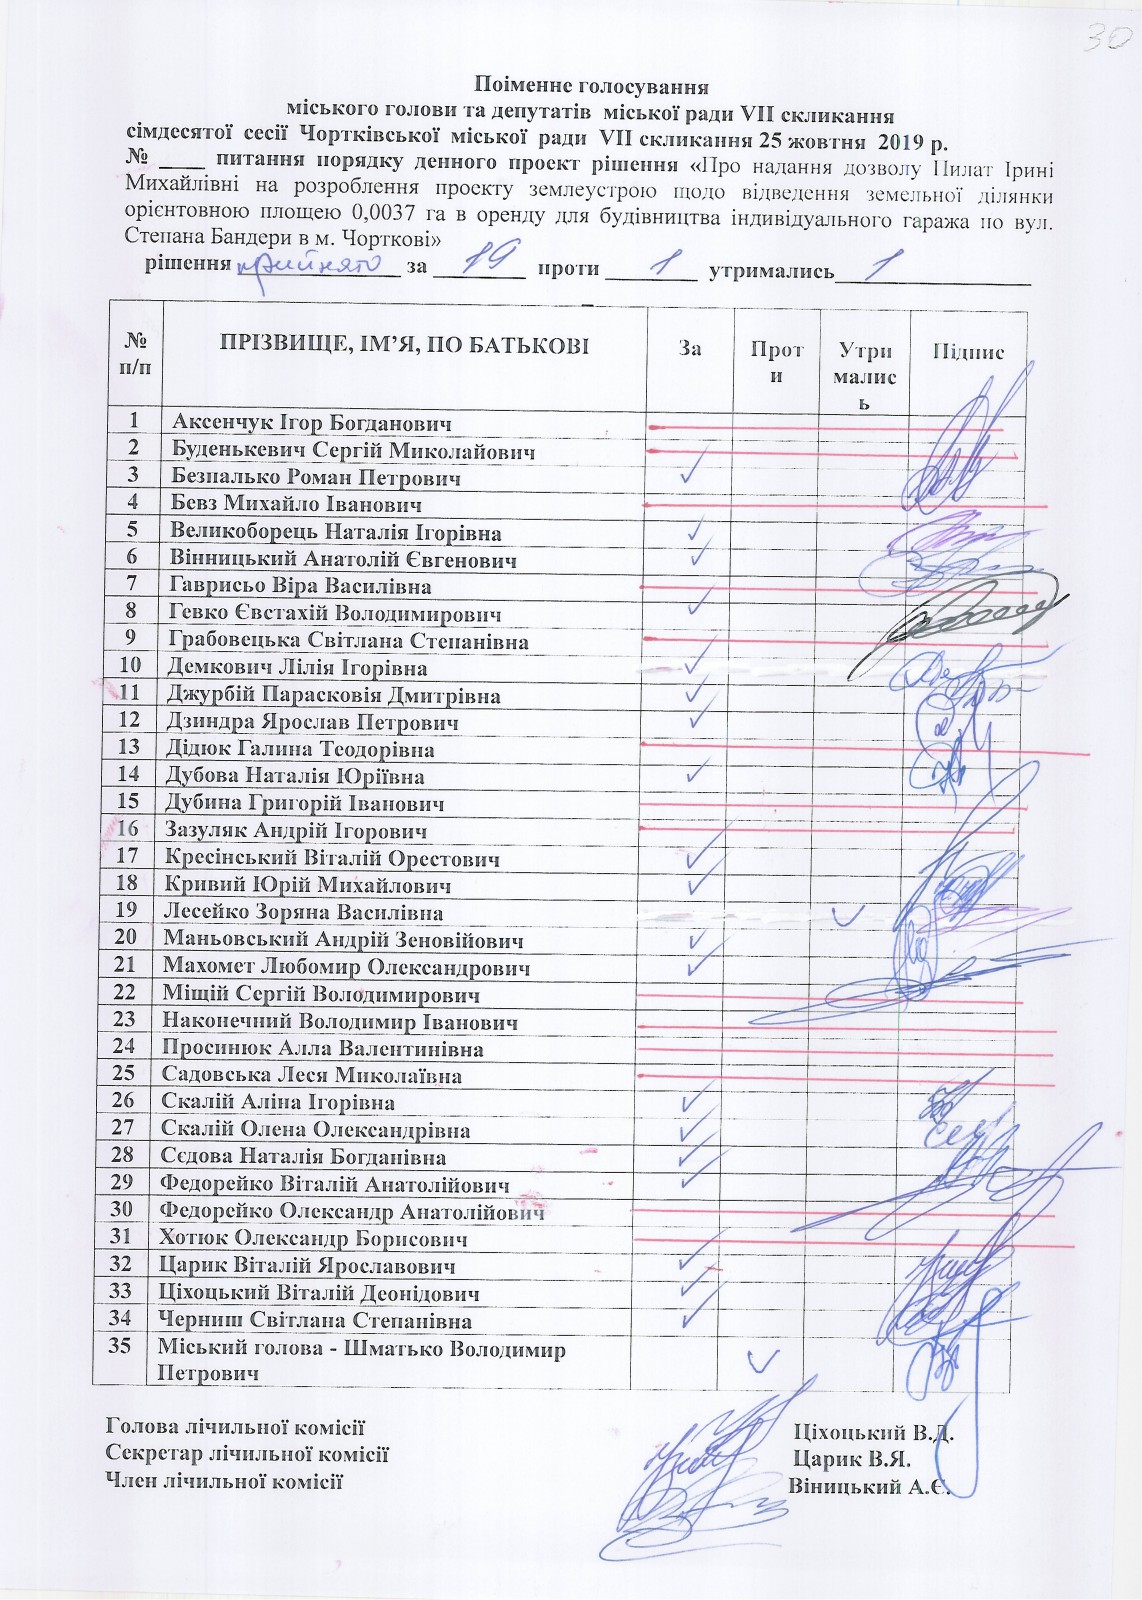 30
Поіменне голосування
міського голови та депутатів міської ради VII скликання
сімдесятої сесії Чортківської міської ради VII скликання 25 жовтня 2019 р.
№ ____ питання порядку денного проект рішення «Про надання дозволу Пилат Ірині
Михайлівні на розроблення проекту землеустрою щодо відведення земельної ділянки
орієнтовною площею 0,0037 га в оренду для будівництва індивідуального гаража по вул.
Степана Бандери в м. Чорткові»
рішення прийнято за 19 проти 1 утримались 1
№ п/п ПРІЗВИЩЕ, ІМ’Я, ПО БАТЬКОВІ За Проти Утрималися Підпис
1 Аксенчук Ігор Богданович
2 Буденькевич Сергій Миколайович
3 Безпалько Роман Петрович ✓
4 Бевз Михайло Іванович
5 Великоборець Наталія Ігорівна ✓
6 Вінницький Анатолій Євгенович ✓
7 Гаврисьо Віра Василівна
8 Гевко Євстахій Володимирович ✓
9 Грабовецька Світлана Степанівна
10 Демкович Лілія Ігорівна ✓
11 Джурбій Парасковія Дмитрівна ✓
12 Дзиндра Ярослав Петрович ✓
13 Дідюк Галина Теодорівна
14 Дубова Наталія Юріївна ✓
15 Дубина Григорій Іванович
16 Зазуляк Андрій Ігорович
17 Кресінський Віталій Орестович ✓
18 Кривий Юрій Михайлович ✓
19 Лесейко Зоряна Василівна ✓
20 Маньовський Андрій Зеновійович ✓
21 Махомет Любомир Олександрович ✓
22 Міщій Сергій Володимирович
23 Наконечний Володимир Іванович
24 Просинюк Алла Валентинівна
25 Садовська Леся Миколаївна
26 Скалій Аліна Ігорівна ✓
27 Скалій Олена Олександрівна ✓
28 Сєдова Наталія Богданівна ✓
29 Федорейко Віталій Анатолійович ✓
30 Федорейко Олександр Анатолійович
31 Хотюк Олександр Борисович
32 Царик Віталій Ярославович ✓
33 Ціхоцький Віталій Деонідович ✓
34 Черниш Світлана Степанівна ✓
35 Міський голова - Шматько Володимир
Петрович ✓
Голова лічильної комісії Ціхоцький В.Д.
Секретар лічильної комісії Царик В.Я.
Член лічильної комісії Віницький А.Є.